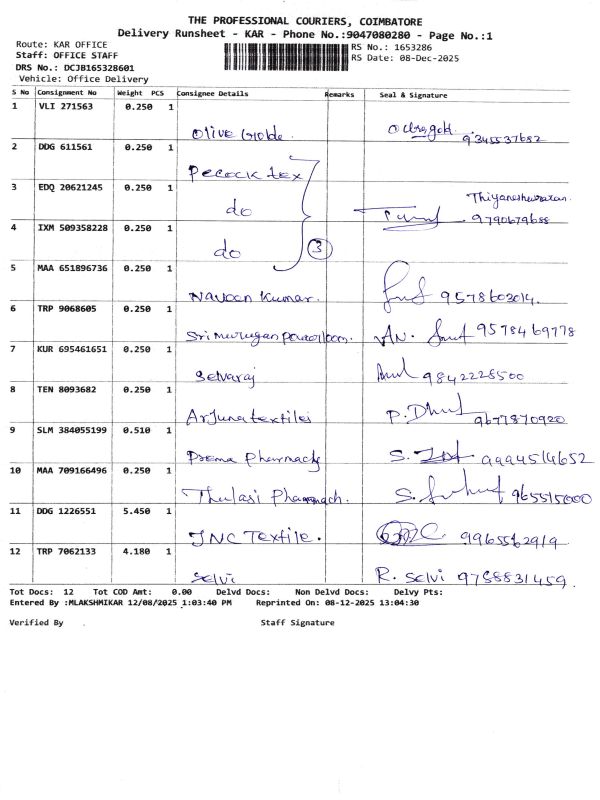 THE PROFESSIONAL COURIERS, COIMBATORE
Delivery Runsheet - KAR - Phone No.:9047080280 - Page No.:1
Route: KAR OFFICE
RS No.: 1653286
Staff: OFFICE STAFF
RS Date: 08-Dec-2025
DRS No.: DCJB165328601
Vehicle: Office Delivery
S No Consignment No Weight PCS Consignee Details Remarks Seal & Signature
1 VLI 271563 0.250 1 Olive Globe 9345537682
2 DDG 611561 0.250 1 Pecock tex
3 EDQ 20621245 0.250 1 do Thiyaneshwaran 9790679688
4 IXM 509358228 0.250 1 do 3
5 MAA 651896736 0.250 1 Naveen Kumar. 9578603014.
6 TRP 9068605 0.250 1 Sri murugan powerloom. 9578469778
7 KUR 695461651 0.250 1 Selvaraj 9842228500
8 TEN 8093682 0.250 1 Arjuna textiles P. 9677870920
9 SLM 384055199 0.510 1 Prema Pharmacy S. 9994514652
10 MAA 709166496 0.250 1 Thulasi S.
11 DDG 1226551 5.450 1 JNC Textile. 9965562919
12 TRP 7062133 4.180 1 Selvi R. Selvi 9788831459.
Tot Docs: 12 Tot COD Amt: 0.00 Delvd Docs: Non Delvd Docs: Delvy Pts:
Entered By :MLAKSHMIKAR 12/08/2025 1:03:40 PM Reprinted On: 08-12-2025 13:04:30
Verified By . Staff Signature